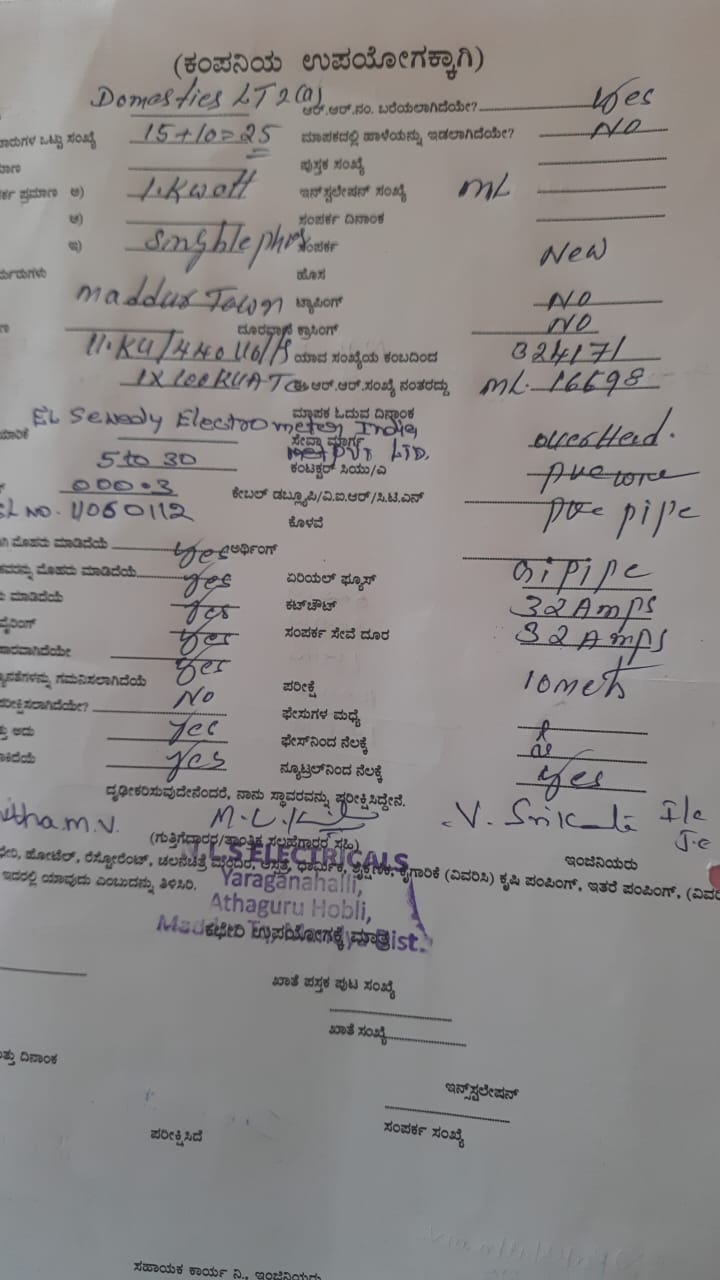 (ಕಂಪನಿಯ ಉಪಯೋಗಕ್ಕಾಗಿ)
Domesties LT2(a) ಆರ್.ಆರ್.ನಂ. ಬರೆಯಲಾಗಿದೆಯೇ? Yes
ಒಟ್ಟು ಸಂಖ್ಯೆ 15+10=25 ಮಾಪಕದಲ್ಲಿ ಹಾಳೆಯನ್ನು ಇಡಲಾಗಿದೆಯೇ? NO
ಪುಸ್ತಕ ಸಂಖ್ಯೆ
ಪ್ರಮಾಣ ಅ) 1.Kwatt ಇನ್‌ಸ್ಟಲೇಷನ್ ಸಂಖ್ಯೆ ML
ಆ) ಸಂಪರ್ಕ ದಿನಾಂಕ
ಇ) Smghle phas ಸಂಪರ್ಕ New
ಹೊಸ
Maddur Town ಟ್ಯಾಪಿಂಗ್ NO
ದೂರವಾಣಿ ಕ್ರಾಸಿಂಗ್ NO
11.KV/440 Volts ಯಾವ ಸಂಖ್ಯೆಯ ಕಂಬದಿಂದ 324171
1X100KVA TC ಈ ಆರ್.ಆರ್.ಸಂಖ್ಯೆ ನಂತರದ್ದು ML-16698
ಮಾಪಕ ಓದುವ ದಿನಾಂಕ
EL Senedy Electrometer India PVT LTD. ಸೇವಾ ಮಾರ್ಗ overHead.
5 to 30 ಕಂಟಕ್ಟರ್ ಸಿಯು/ಎ PVC wore
000.3 ಕೇಬಲ್ ಡಬ್ಲ್ಯೂಪಿ/ವಿ.ಐ.ಆರ್/ಸಿ.ಟಿ.ಎನ್
SL NO. 11060112 ಕೊಳವೆ pve pipe
ಮೊಹರು ಮಾಡಿದೆಯೆ Yes ಅರ್ಥಿಂಗ್
ಮೊಹರು ಮಾಡಿದೆಯೆ Yes ಏರಿಯಲ್ ಫ್ಯೂಸ್ Gi pipe
ಮಾಡಿದೆಯೆ Yes ಕಟ್‌ಔಟ್ 32 Amps
Yes ಸಂಪರ್ಕ ಸೇವೆ ದೂರ 32 Amps
Yes
ಗಮನಿಸಲಾಗಿದೆಯೆ No ಪರೀಕ್ಷೆ 10 mets
ಫೇಸುಗಳ ಮಧ್ಯೆ
ಅದು Yes ಫೇಸ್‌ನಿಂದ ನೆಲಕ್ಕೆ
Yes ನ್ಯೂಟ್ರಲ್‌ನಿಂದ ನೆಲಕ್ಕೆ Yes
ದೃಢೀಕರಿಸುವುದೇನೆಂದರೆ, ನಾನು ಸ್ಥಾವರವನ್ನು ಪರೀಕ್ಷಿಸಿದ್ದೇನೆ.
M.V. V. Srikanta
(ಗುತ್ತಿಗೆದಾರರ/ತಾಂತ್ರಿಕ ಸಲಹೆಗಾರರ ಸಹಿ) ಇಂಜಿನಿಯರು
ELECTRICALS
ಹೋಟೆಲ್, ರೆಸ್ಟೋರೆಂಟ್, ಚಲನಚಿತ್ರ ಮಂದಿರ, ಆಸ್ಪತ್ರೆ, ಧಾರ್ಮಿಕ, ಶೈಕ್ಷಣಿಕ, ಕೈಗಾರಿಕೆ (ವಿವರಿಸಿ) ಕೃಷಿ ಪಂಪಿಂಗ್, ಇತರೆ ಪಂಪಿಂಗ್,
ಇದರಲ್ಲಿ ಯಾವುದು ಎಂಬುದನ್ನು ತಿಳಿಸಿರಿ.
Yaraganahalli,
Athaguru Hobli,
ಕಛೇರಿ ಉಪಯೋಗಕ್ಕೆ ಮಾತ್ರ
ಖಾತೆ ಪಸ್ತಕ ಪುಟ ಸಂಖ್ಯೆ
ಖಾತೆ ಸಂಖ್ಯೆ
ದಿನಾಂಕ
ಇನ್ಸ್‌ಸ್ಟಲೇಷನ್
ಪರೀಕ್ಷಿಸಿದೆ
ಸಂಪರ್ಕ ಸಂಖ್ಯೆ
ಸಹಾಯಕ ಕಾರ್ಯ ನಿ., ಇಂಜಿನಿಯರು